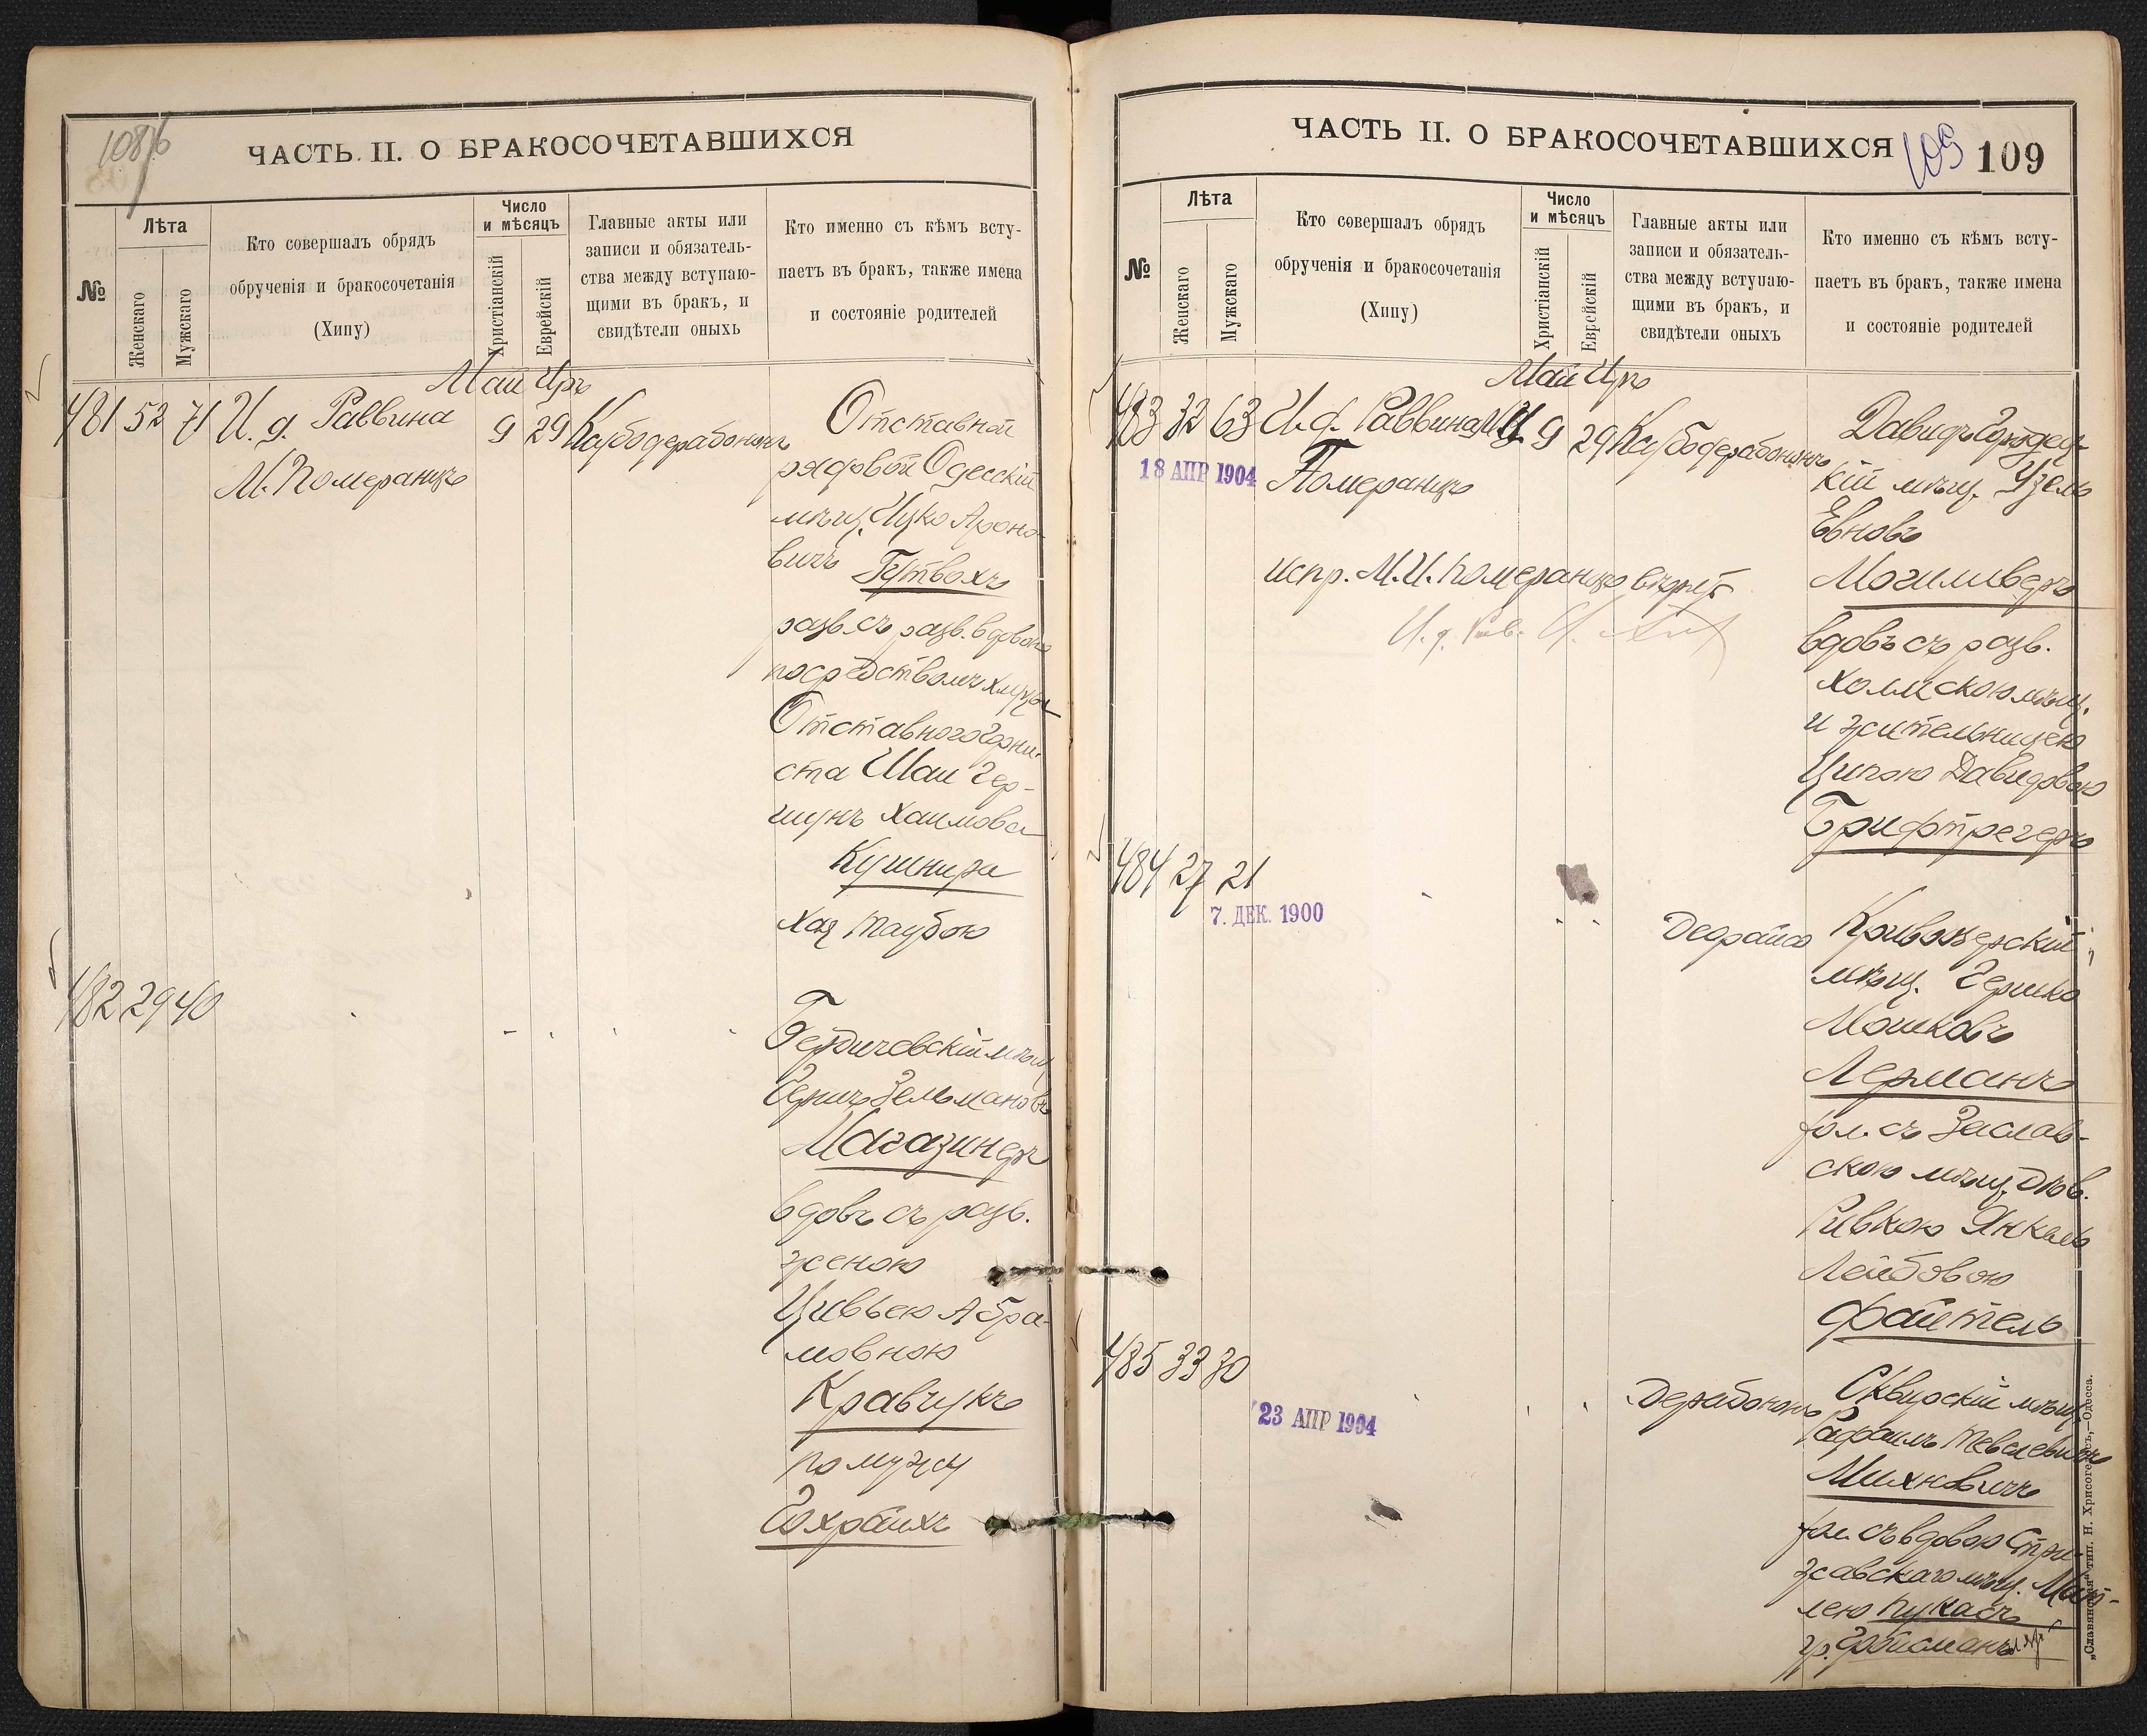 1086
ЧАСТЬ II. О БРАКОСОЧЕТАВШИХСЯ
№
Лѣта
Женскаго
Мужскаго
Кто совершалъ обрядъ
обрученія и бракосочетанія
(Хипу)
Число
и мѣсяцъ
Христіанскій
Еврейскій
Главные акты или
записи и обязатель-
ства между вступаю-
щими въ бракъ, и
свидѣтели оныхъ
Кто именно съ кѣмъ всту-
паетъ въ бракъ, также имена
и состояніе родителей
Май Иръ
481 52 71 И. д. Раввина 9 29 Каубодерабононъ
М. Померанцъ
Отставной
рядовой Одесскій
мѣщ. Ицко Ароно-
вичъ Гутвохъ
разв. съ разв. вдовою
посредствомъ халицы
Отставного горни-
ста Шаи Гер-
шунъ Хаимова
Кушнира
Хая Таубою
482 29 40
Бердичевскій мѣщ.
Герцъ Зельмановъ
Магазинеръ
вдовъ съ разв.
женою
Цивьею Абра-
мовною
Кравчукъ
по мужу
ЧАСТЬ II. О БРАКОСОЧЕТАВШИХСЯ
109
109
№
Лѣта
Женскаго
Мужскаго
Кто совершалъ обрядъ
обрученія и бракосочетанія
(Хипу)
Число
и мѣсяцъ
Христіанскій
Еврейскій
Главные акты или
записи и обязатель-
ства между вступаю-
щими въ бракъ, и
свидѣтели оныхъ
Кто именно съ кѣмъ всту-
паетъ въ бракъ, также имена
и состояніе родителей
Май Иръ
483 32 63 И. д. Раввина М. И. 9 29 Каубодерабононъ
18 АПР 1904
Померанцъ
испр. М. И. Померанцъ вѣрно
И. д. Рав.
Давидъ Городец-
кій мѣщ. Узель
Евновъ
Могиливеръ
вдовъ съ разв.
Холмскою мѣщ.
и жительницею
Ципою Давидовою
Брифтрегеръ
484 27 21
7. ДЕК. 1900
Деорайсо
Кривозерскій
мѣщ. Гершко
Мошковъ
Лерманъ
хол. съ Заслав-
скою мѣщ. дѣв.
Ривкою Янкель
Лейбовою
Файтель
485 33 30
23 АПР 1904
Дерабононъ
Сквирскій мѣщ.
Рафаилъ Тевелевичъ
Михновичъ
хол. съ вдовою Стри-
жавскаго мѣщ.
лею Пукасъ
„Славянская“ тип. Н. Хрисогелосъ,—Одесса.